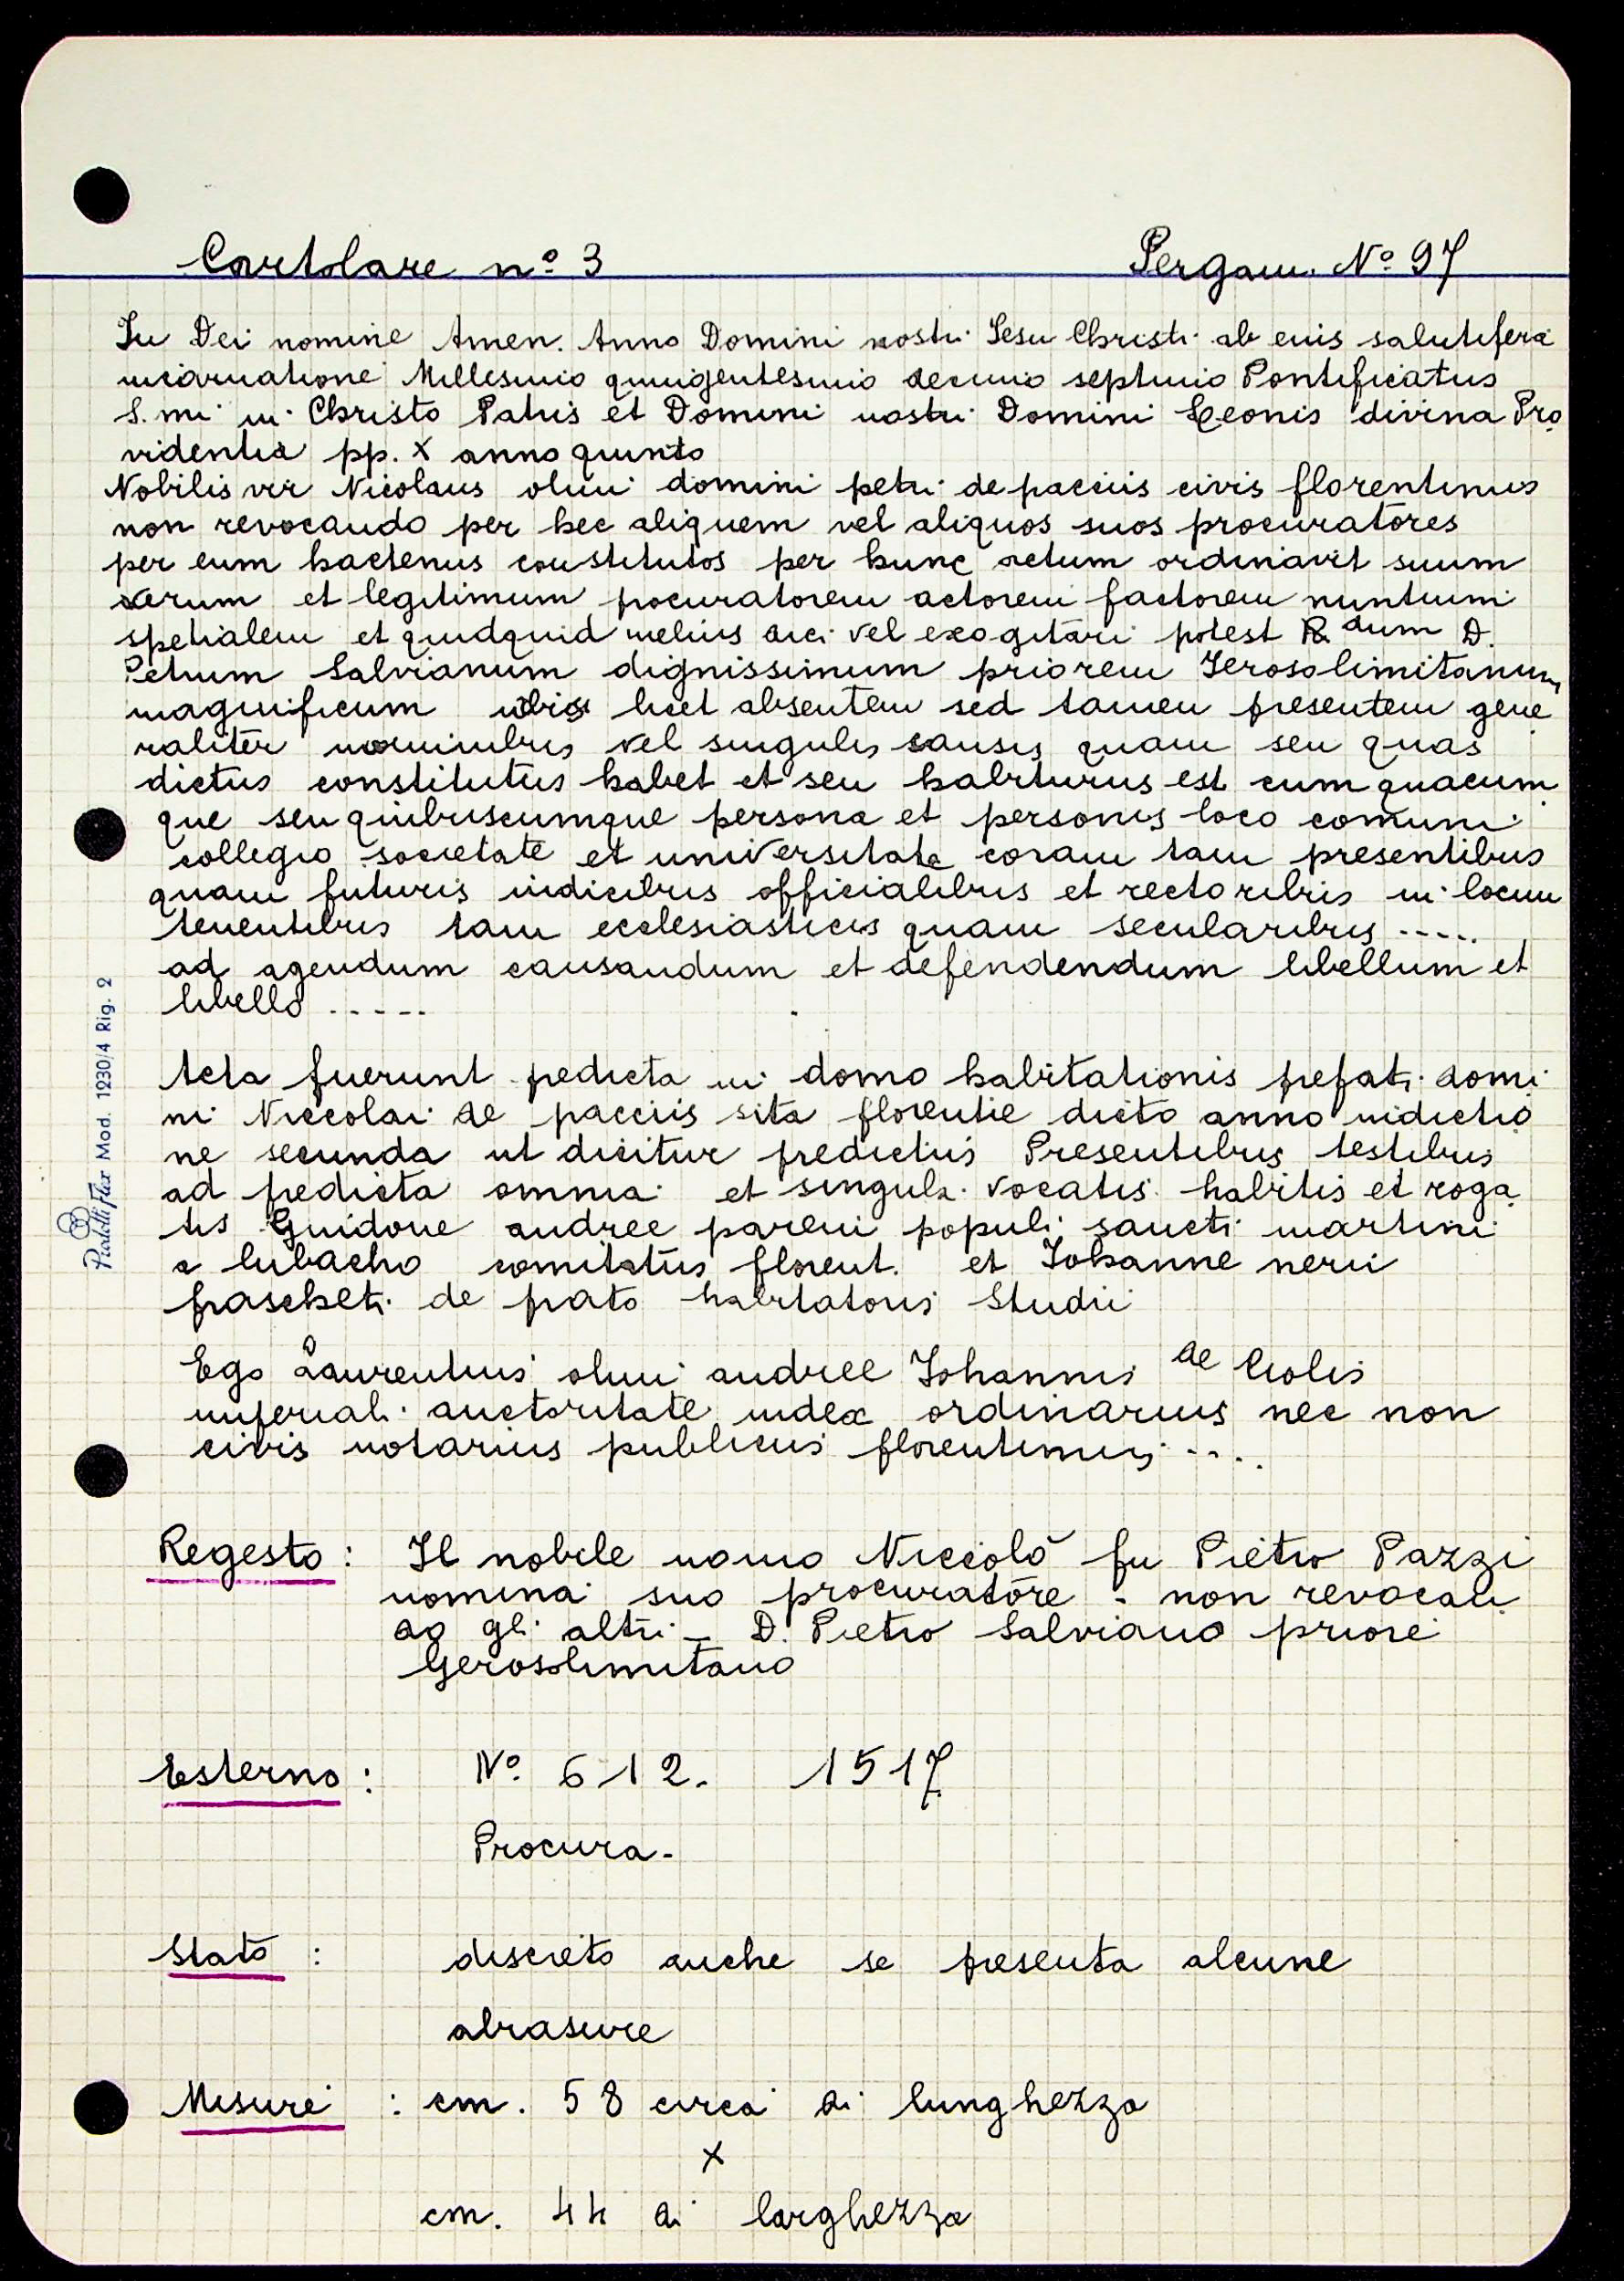 Cartolare n° 3
Pergam. N° 97
In Dei nomine Amen. Anno Domini nostri Iesu Christi ab eius salutifera
incarnatione Millesimo quingentesimo decimo septimo Pontificatus
S.mi in Christo Patris et Domini nostri Domini Leonis divina Pro
videntia pp. X anno quinto
Nobilis vir Nicolaus olim domini petri de pacciis civis florentinus
non revocando per hec aliquem vel aliquos suos procuratores
per eum hactenus constitutos per hunc actum ordinavit suum
verum et legitimum procuratorem actorem factorem nuntium
spetialem et quidquid melius dici vel exogitari potest R.dum D.
Petrum Salvianum dignissimum priorem Ierosolimitanum
magnificum licet absentem sed tamen presentem gene
raliter vel singulis causis quam seu quas
dictus constitutus habet et seu habiturus est cum quacum
que seu quibuscumque persona et personis loco comuni
collegio societate et universitate coram tam presentibus
quam futuris iudicibus officialibus et rectoribus in locum
tenentibus tam ecclesiasticis quam secularibus .....
ad agendum causandum et defendendum libellum et
libello .....
Acta fuerunt predicta in domo habitationis prefati domi
ni Niccolai de pacciis sita florentie dicto anno indictio
ne secunda ut dicitur predictus Presentibus testibus
ad predicta omnia et singula vocatis habitis et roga
tis Guidone andree pareni populi sancti martini
a lubacho comitatus florent. et Iohanne nerii
frascheti de prato habitatoris Studii
Ego Laurentius olim andree Iohannis de Ciolis
imperiali auctoritate iudex ordinarius nec non
civis notarius publicus florentinus ....
Regesto : Il nobile uomo Niccolò fu Pietro Pazzi
nomina suo procuratore - non revocan
do gli altri - D. Pietro Salviano priore
Gerosolimitano
Esterno : N° 612. 1517
Procura.
Stato : discreto anche se presenta alcune
abrasure
Misure : cm. 58 circa di lunghezza
x
cm. 44 di larghezza
Mod. 1230/4 Rig. 2